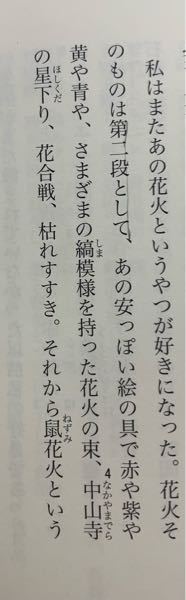 私はまたあの花火というやつが好きになった。花火そ
のものは第二段として、あの安っぽい絵の具で赤や紫や
黄や青や、さまざまの縞模様を持った花火の束、中山寺
の星下り、花合戦、枯れすすき。それから鼠花火という
しま
4
なかやまでら
ほしくだ
ねずみ